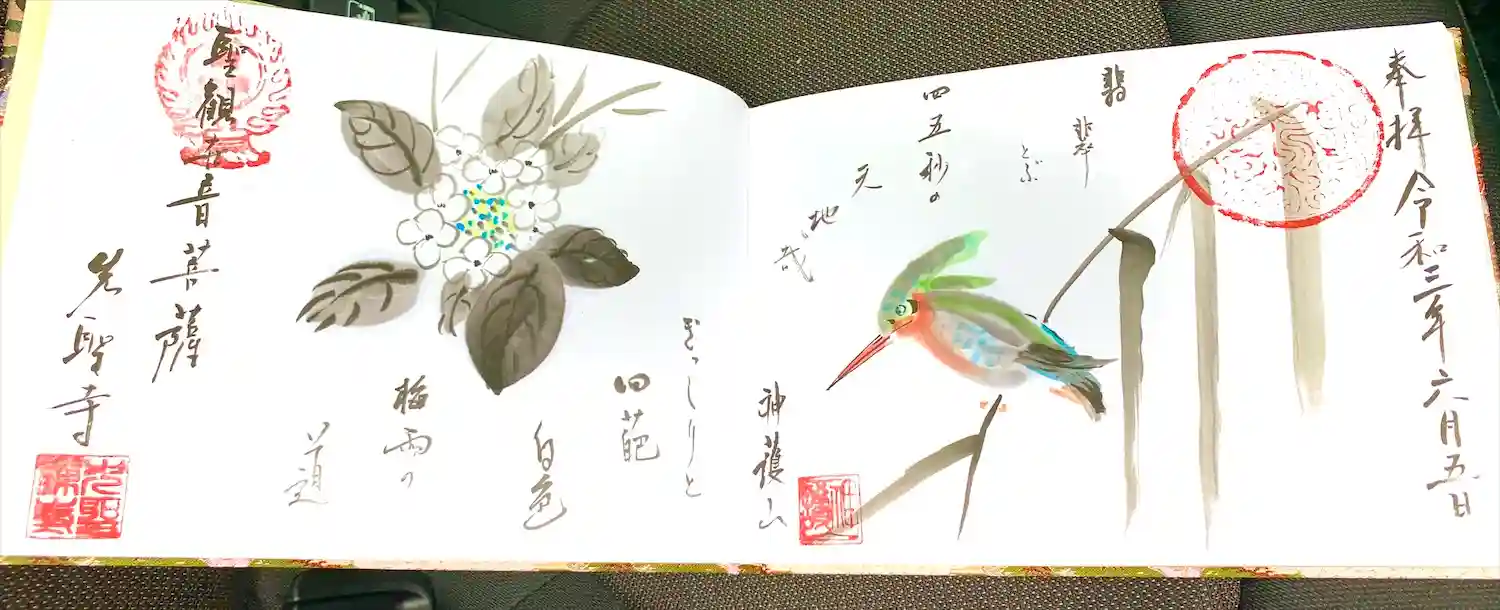 奉拝 令和三年六月五日
翡
翠
とぶ
四五秒の
天
地
哉
神護山
ぎっしりと
四葩
白色
梅雨の
道
聖觀世音菩薩
光聖寺